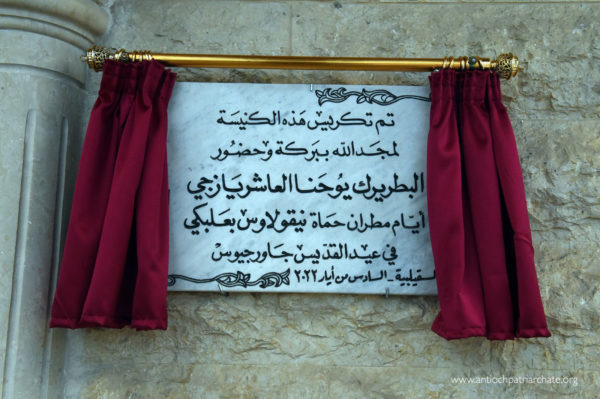 تم تكريس هَذه الكنيسَة
لمجد الله ببَركة وحضُور
البطريرك يُوحَنا العاشر يَازجي
أيّام مطران حمَاة نيقولاوس بعَلبكي
في عيد القدّيس جَاورجيوسْ
السقيلبية - السَادس من أيار ٢٠٢٢
www.antiochpatriarchate.org